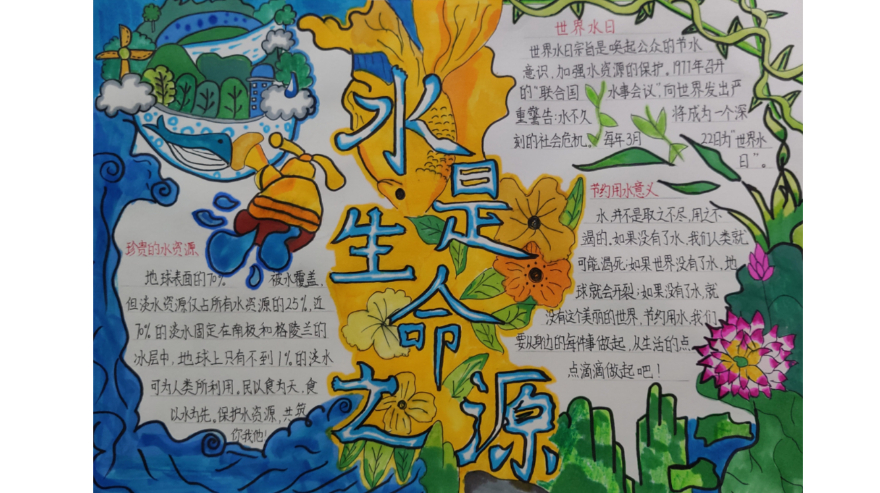 水是
生命
之源
世界水日
世界水日宗旨是唤起公众的节水
意识,加强水资源的保护。1977年召开
的"联合国 水事会议"向世界发出严
重警告:水不久 将成为一个深
刻的社会危机。每年3月 22日为"世界水
日"。
珍贵的水资源
地球表面的70% 被水覆盖,
但淡水资源仅占所有水资源的2.5%,近
70%的淡水固定在南极和格陵兰的
冰层中,地球上只有不到1%的淡水
可为人类所利用。民以食为天,食
以水为先。保护水资源,共筑
你我他!
节约用水意义
水,并不是取之不尽,用之不
竭的。如果没有了水,我们人类就
可能渴死;如果世界没有了水,地
球就会开裂;如果没有了水,就
没有这个美丽的世界,节约用水,我们
要从身边的每件事做起,从生活的点
点滴滴做起吧!